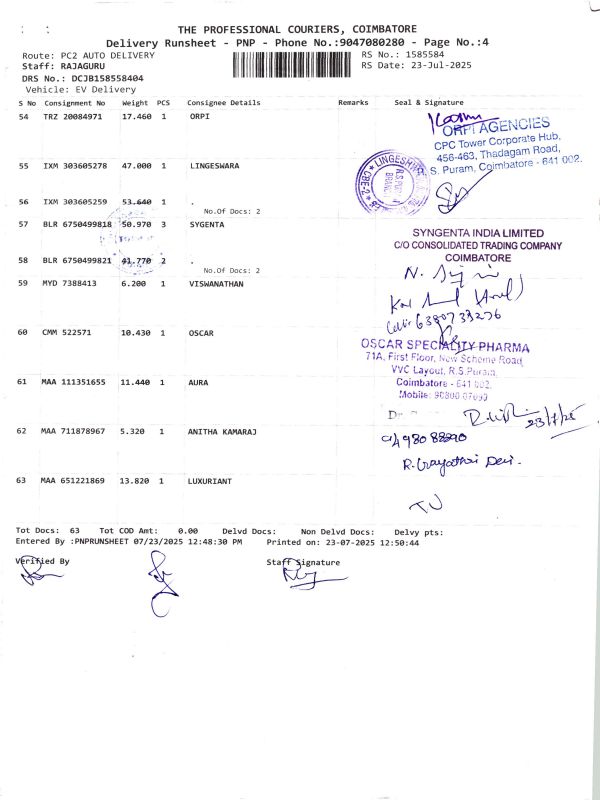 THE PROFESSIONAL COURIERS, COIMBATORE
Delivery Runsheet - PNP - Phone No.:9047080280 - Page No.:4
Route: PC2 AUTO DELIVERY
RS No.: 1585584
Staff: RAJAGURU
RS Date: 23-Jul-2025
DRS No.: DCJB158558404
Vehicle: EV Delivery
S No Consignment No Weight PCS Consignee Details Remarks Seal & Signature
54 TRZ 20084971 17.460 1 ORPI
ORPI AGENCIES
CPC Tower Corporate Hub,
456-463, Thadagam Road,
R.S. Puram, Coimbatore - 641 002.
55 IXM 303605278 47.000 1 LINGESWARA
56 IXM 303605259 53.640 1 .
No.Of Docs: 2
57 BLR 6750499818 50.970 3 SYGENTA
SYNGENTA INDIA LIMITED
C/O CONSOLIDATED TRADING COMPANY
COIMBATORE
58 BLR 6750499821 41.770 2 .
No.Of Docs: 2
59 MYD 7388413 6.200 1 VISWANATHAN
60 CMM 522571 10.430 1 OSCAR
OSCAR SPECIALITY PHARMA
71A, First Floor, New Scheme Road,
VVC Layout, R.S.Puram,
Coimbatore - 641 002.
61 MAA 111351655 11.440 1 AURA
23/7/25
62 MAA 711878967 5.320 1 ANITHA KAMARAJ
R. Gayathri Devi.
63 MAA 651221869 13.820 1 LUXURIANT
Tot Docs: 63 Tot COD Amt: 0.00 Delvd Docs: Non Delvd Docs: Delvy pts:
Entered By :PNPRUNSHEET 07/23/2025 12:48:30 PM Printed on: 23-07-2025 12:50:44
Verified By
Staff Signature